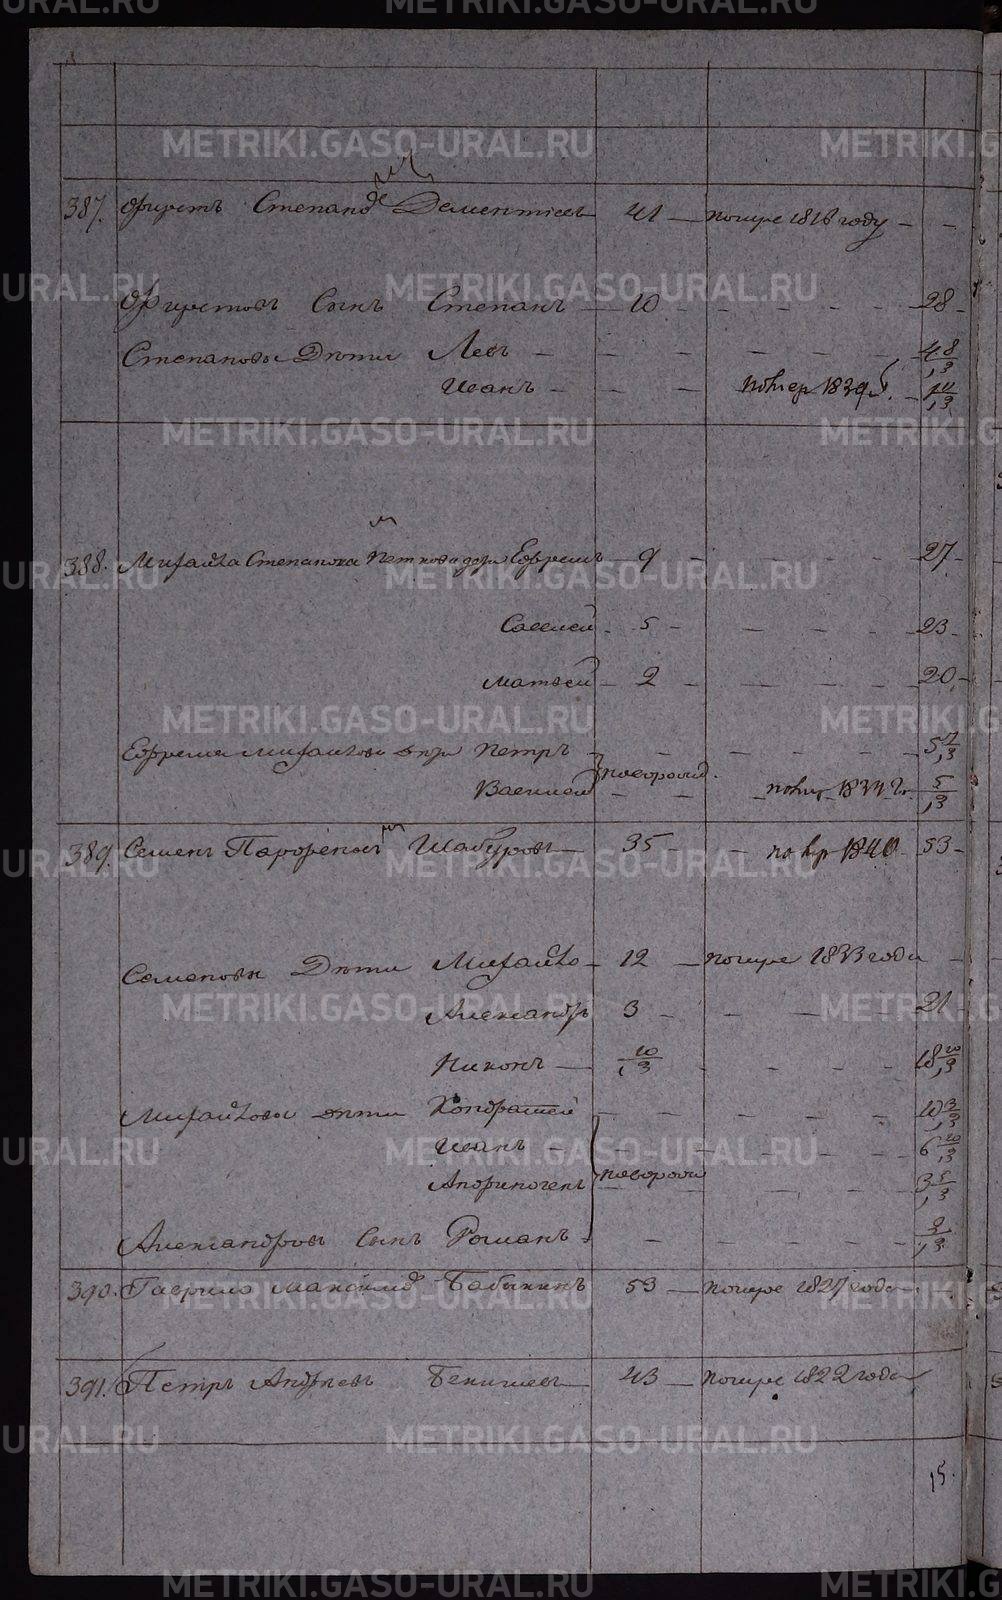 387. Фирстъ Степанов Дементьевъ 41 — помре 1818 году — —
Фирстовъ Сынъ Степанъ 10 — — — — 28 —
Степановы Дѣти Левъ — — — — — 4 8/13
Иванъ — — — помер 1839 г. — 1 11/13
388. Михайла Степанова Петкова дѣти Ефремъ — 9 — — — — 27 —
Савелей — 5 — — — — 23 —
Матвей — 2 — — — — 20 —
Ефрема Михайлова дѣти Петръ — — — — — 5 4/13
Василей новорожд. — 1834 г. 5/13
389. Семенъ Парфеновъ Шабуровъ — 35 — — помр 1840 53 —
Семеновы Дѣти Михайло — 12 — помре 1833 года — —
Александръ 3 — — — — 21
Никонъ — 10/13 — — — — 18 10/13
Михайловы дѣти Кондратей — — — — — 10 3/13
Иванъ — — — — — 6 10/13
Анфиногенъ новорожд — — — — 3 5/13
Александровъ сынъ Романъ — — — — — 9/13
390. Гаврило Максимов Бабыкинъ 53 — помре 1827 года — —
391. Петръ Андреевъ Бекишевъ — 43 — помре 1822 года
15.
METRIKI.GASO-URAL.RU